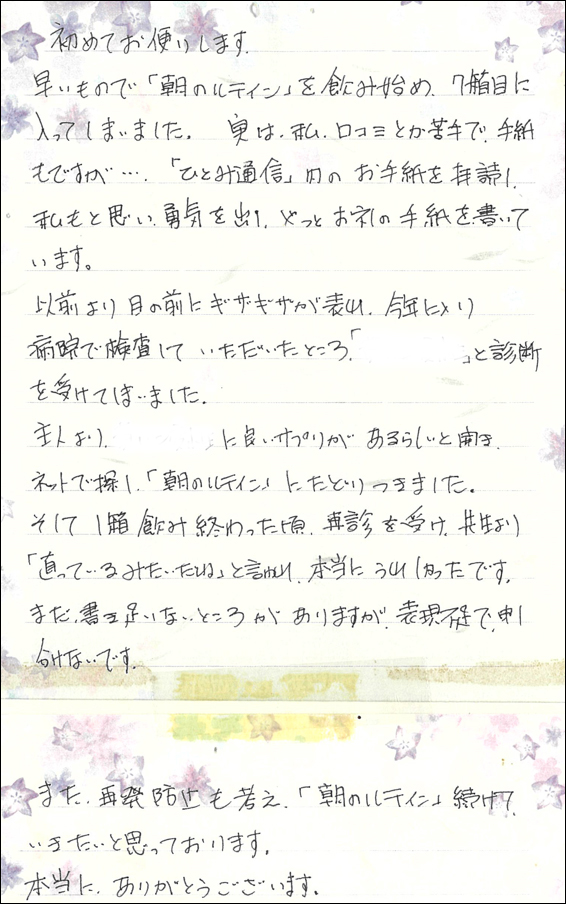 初めてお便りします。
早いもので「朝のルテイン」を飲み始め、7箱目に
入ってしまいました。 実は、私、口コミとか苦手で、手紙
もですが…、「ひとみ通信」内の お手紙を拝読し、
私もと思い、勇気を出し、やっとお礼の手紙を書いて
います。
以前より目の前にギザギザが表れ、今年に入り
病院で検査していただいたところ、「 」と診断
を受けてしまいました。
主人より、 に良いサプリが あるらしいと聞き、
ネットで探し、「朝のルテイン」にたどりつきました。
そして1箱飲み終わった頃、再診を受け、先生より
「直っているみたいだね」と言われ、本当にうれしかったです。
まだ、書き足りないところがありますが、表現不足で、申し
訳ないです。
また、再発防止も考え、「朝のルテイン」続けて
いきたいと思っております。
本当に、ありがとうございます。